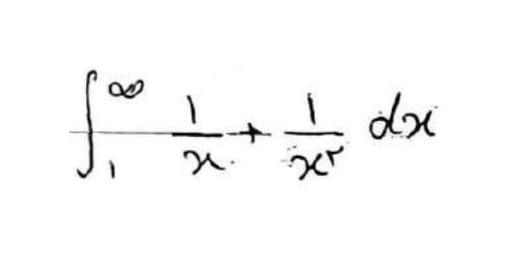 ∫₁^∞ 1/x + 1/x^r dx